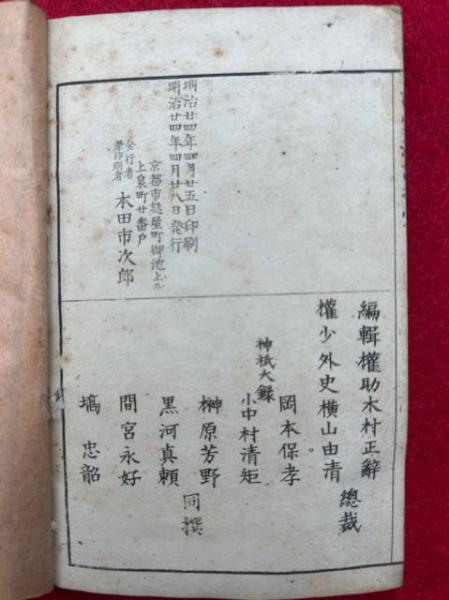 明治廿四年四月廿五日印刷
明治廿四年四月廿八日発行
京都市麸屋町御池上ル
上泉町廿番戸
発行者
兼印刷者
本田市次郎
編輯權助木村正辭
權少外史横山由清
總裁
岡本保孝
神祇大録
小中村清矩
榊原芳野
黒河真頼
間宮永好
塙忠韶
同撰